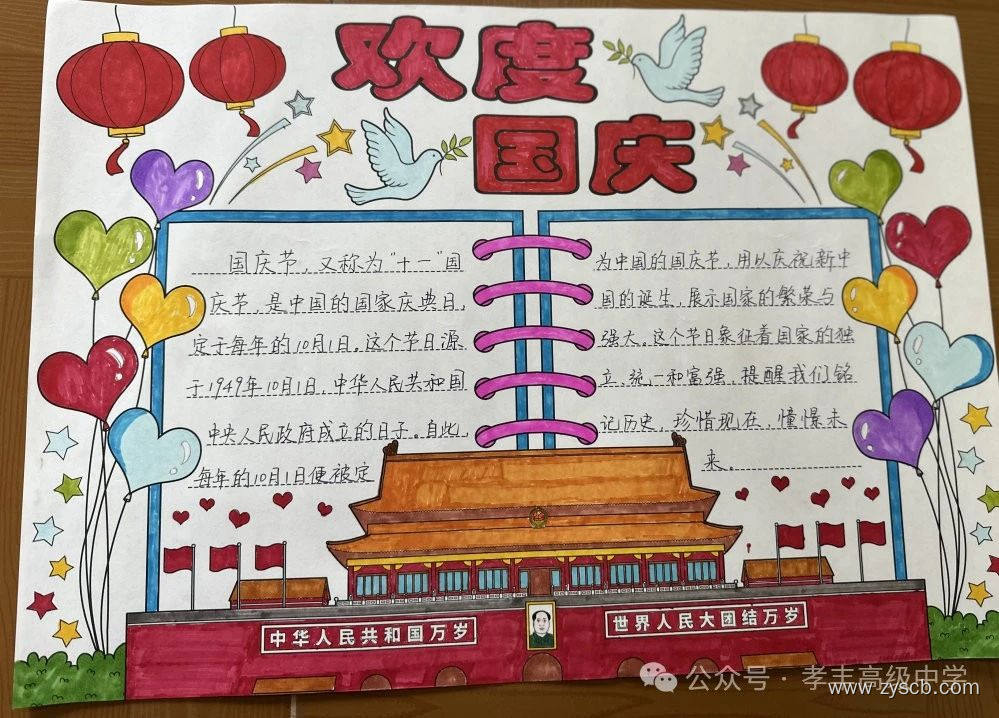 欢度
国庆
国庆节，又称为"十一"国
庆节，是中国的国家庆典日，
定于每年的10月1日。这个节日源
于1949年10月1日，中华人民共和国
中央人民政府成立的日子。自此，
每年的10月1日便被定
为中国的国庆节，用以庆祝新中
国的诞生，展示国家的繁荣与
强大。这个节日象征着国家的独
立、统一和富强，提醒我们铭
记历史，珍惜现在，憧憬未
来。
中华人民共和国万岁
世界人民大团结万岁
公众号·孝丰高级中学
www.zyscb.com